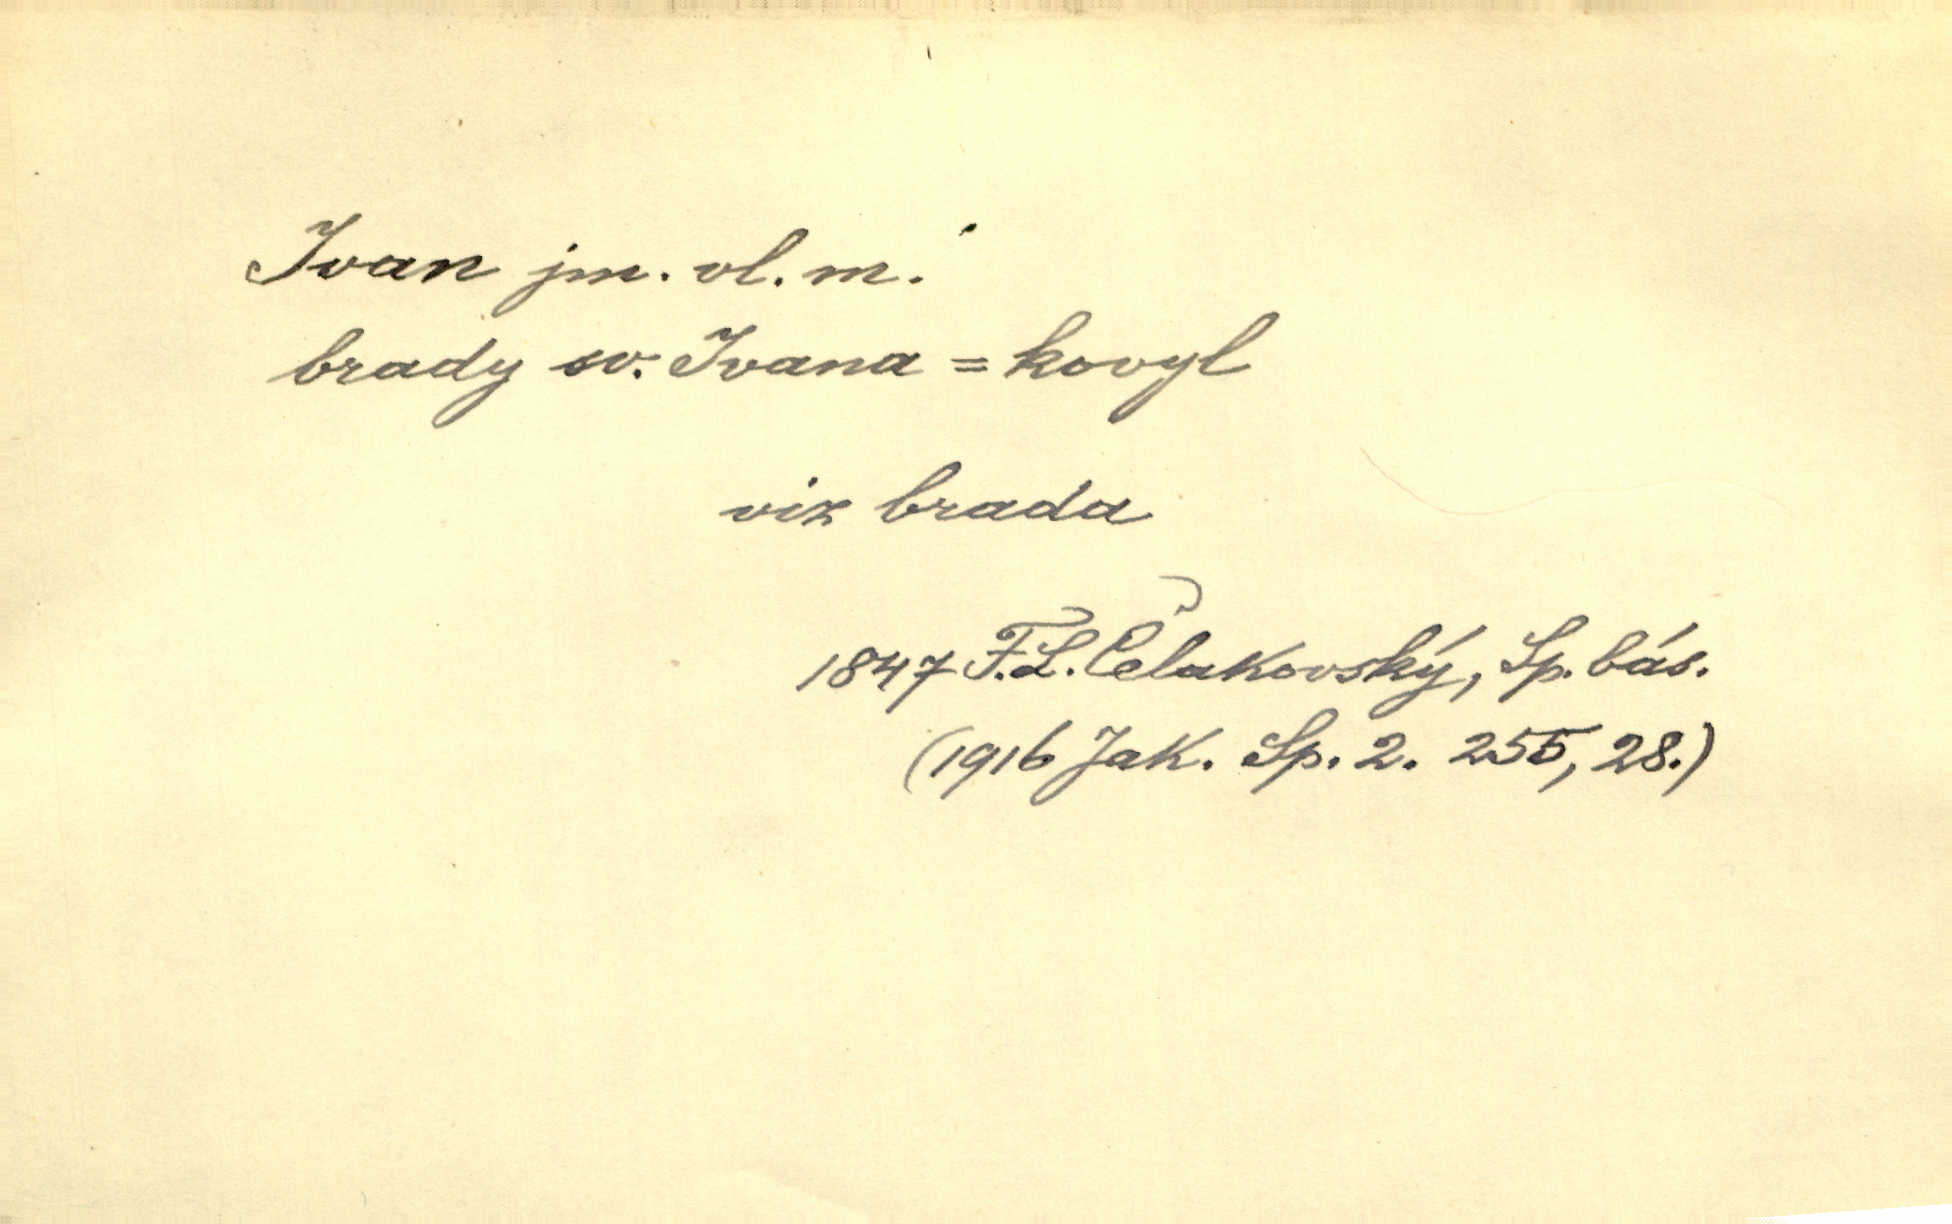 Ivan jm. vl. m.
brady sv. Ivana = kovyl
viz brada
1847 F. L. Čelakovský, Sp. bás.
(1916 Jak. Sp. 2. 255, 28.)